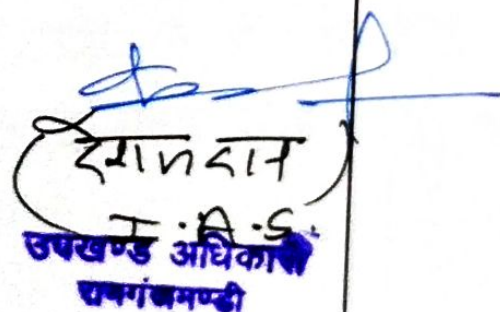 (देशल दान
I.A.S.)
उपखण्ड अधिकारी
रामगंजमण्डी